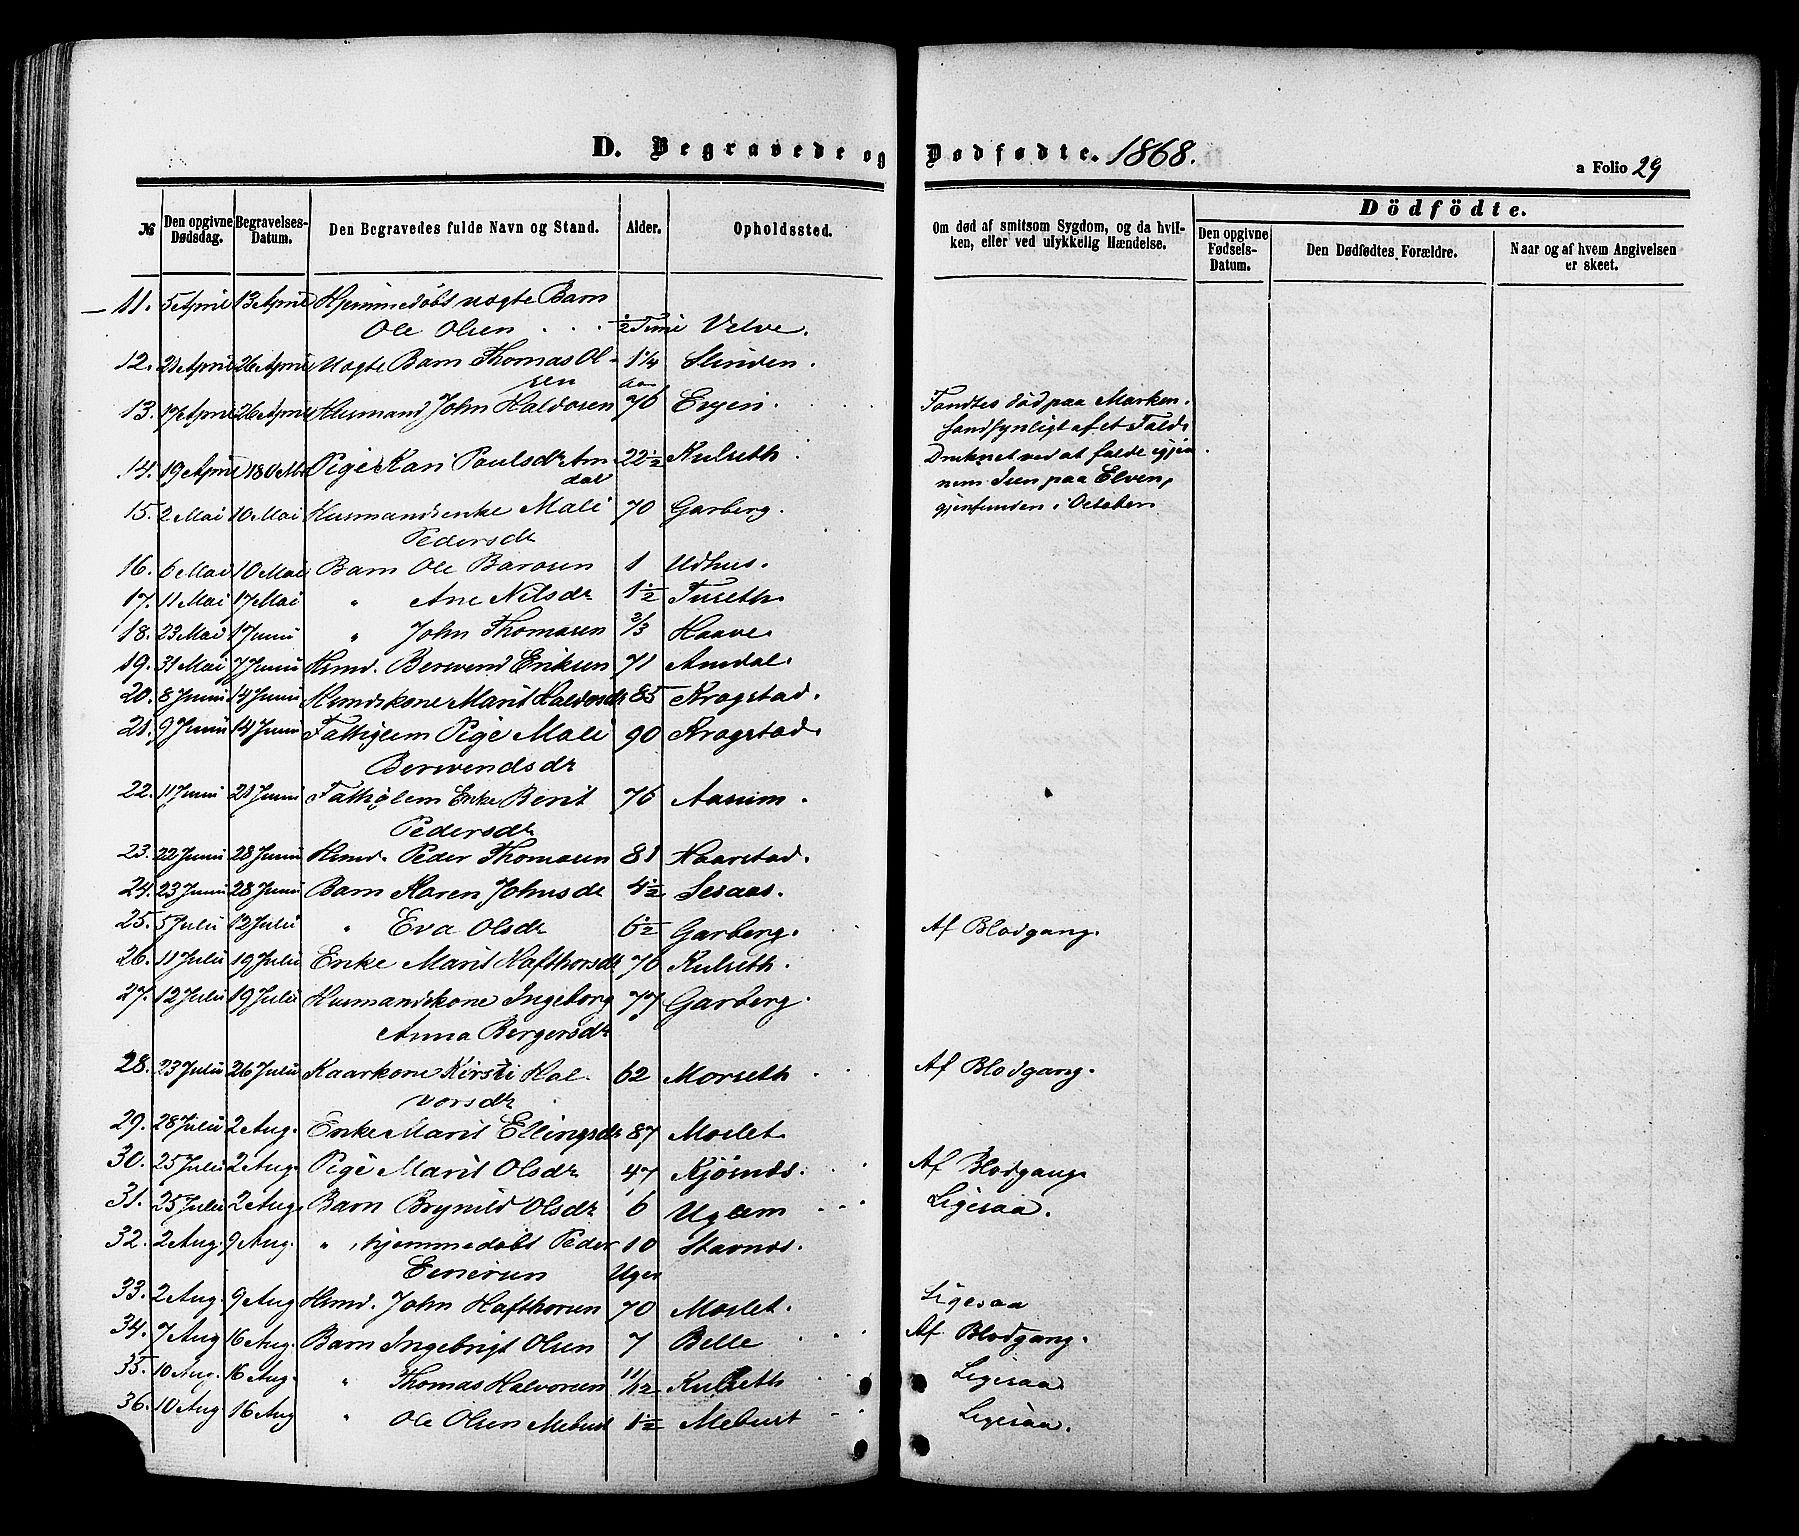 D. Begravede og Dödfödte. 1868.
a Folio 29
№ Den opgivne Dødsdag. Begravelses-Datum. Den Begravedes fulde Navn og Stand. Alder. Opholdssted. Om død af smitsom Sygdom, og da hvilken, eller ved ulykkelig Hændelse.
Dödfödte.
Den opgivne Fødsels-Datum. Den Dødfødtes Forældre. Naar og af hvem Angivelsen er skeet.
11. 5 April 13 April Hjemmedøbt uægte Barn
Ole Olsen ½ Time Velve.
12. 21 April 26 April Uægte Barn Thomas Ol-
sen 1¼ Aar Slinden.
13. 17 April 26 April Husmand John Haldosen 76 Evjen. Fandtes død paa Marken.
sandsynligt af et Fald.
14. 19 April 18 Pige Kari Paulsdr Am
dal 22½ Kulseth Druknet ved at falde igjen
nem Isen paa Elven,
gjenfunden i October
15. 2 Mai 10 Mai Husmandsenke Mali
Pedersdr 70 Garberg.
16. 6 Mai 10 Mai Barn Ole Barosen 1 Udhus.
17. 11 Mai 17 Mai " Ane Nilsdr 1½ Tuseth.
18. 23 Mai 1 Juni " John Thomasen 2/3 Haave.
19. 31 Mai 7 Juni Hsmd. Berwend Eriksen 71 Amdal.
20. 8 Juni 14 Juni Hsmdskone Marit Haldosdr 85 Kragstad.
21. 9 Juni 14 Juni Fattiglem Pige Mali
Berwendsdr 90 Kragstad.
22. 11 Juni 21 Juni Fattiglem Enke Berit
Pedersdr 76 Aarum.
23. 22 Juni 28 Juni Hsmd. Peder Thomasen 81 Haarstad.
24. 23 Juni 28 Juni Barn Karen Johnsdr 4½ Sesaas.
25. 5 Juli 12 Juli " Eva Olsdr 6½ Garberg. Af Blodgang.
26. 11 Juli 19 Juli Enke Marit Hafthorsdr 76 Kulseth.
27. 12 Juli 19 Juli Husmandskone Ingeborg
Anna Bergersdr 77 Garberg
28. 23 Juli 26 Juli Kaarkone Kirsti Hal-
vorsdr 62 Morseth Af Blodgang.
29. 28 Juli 2 Aug. Enke Marit Ellingsdr 87 Moslet
30. 25 Juli 2 Aug. Pige Marit Olsdr 47 Kjøsnæs. Af Blodgang
31. 25 Juli 2 Aug. Barn Brynild Olsdr 6 Uglem Ligesaa.
32. 2 Aug. 9 Aug. " , hjemmedøbt Peder
Eenersen 10 Uger Stavnæs.
33. 2 Aug. 9 Aug Hsmd. John Hafthorsen 70 Moslet. Ligesaa
34. 7 Aug 16 Aug. Barn Ingebrigt Olsen 7 Belle Af Blodgang.
35. 10 Aug. 16 Aug. " Thomas Halvorsen 11/12 Kulseth Ligesaa
36. 10 Aug 16 Aug " Ole Olsen Mebust 1½ Mebust Ligesaa.